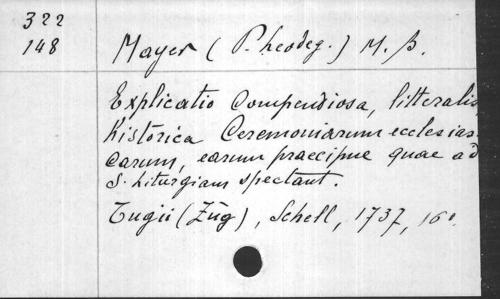 322
148
Mayer (P. heodeg.) M. B.
Explicatio Compendiosa, litteralis
historica Ceremoniarum ecclesias
carum, earum praecipue quae ad
S. Liturgiam spectant.
Tugii (Zug), Schell, 1737, 16°